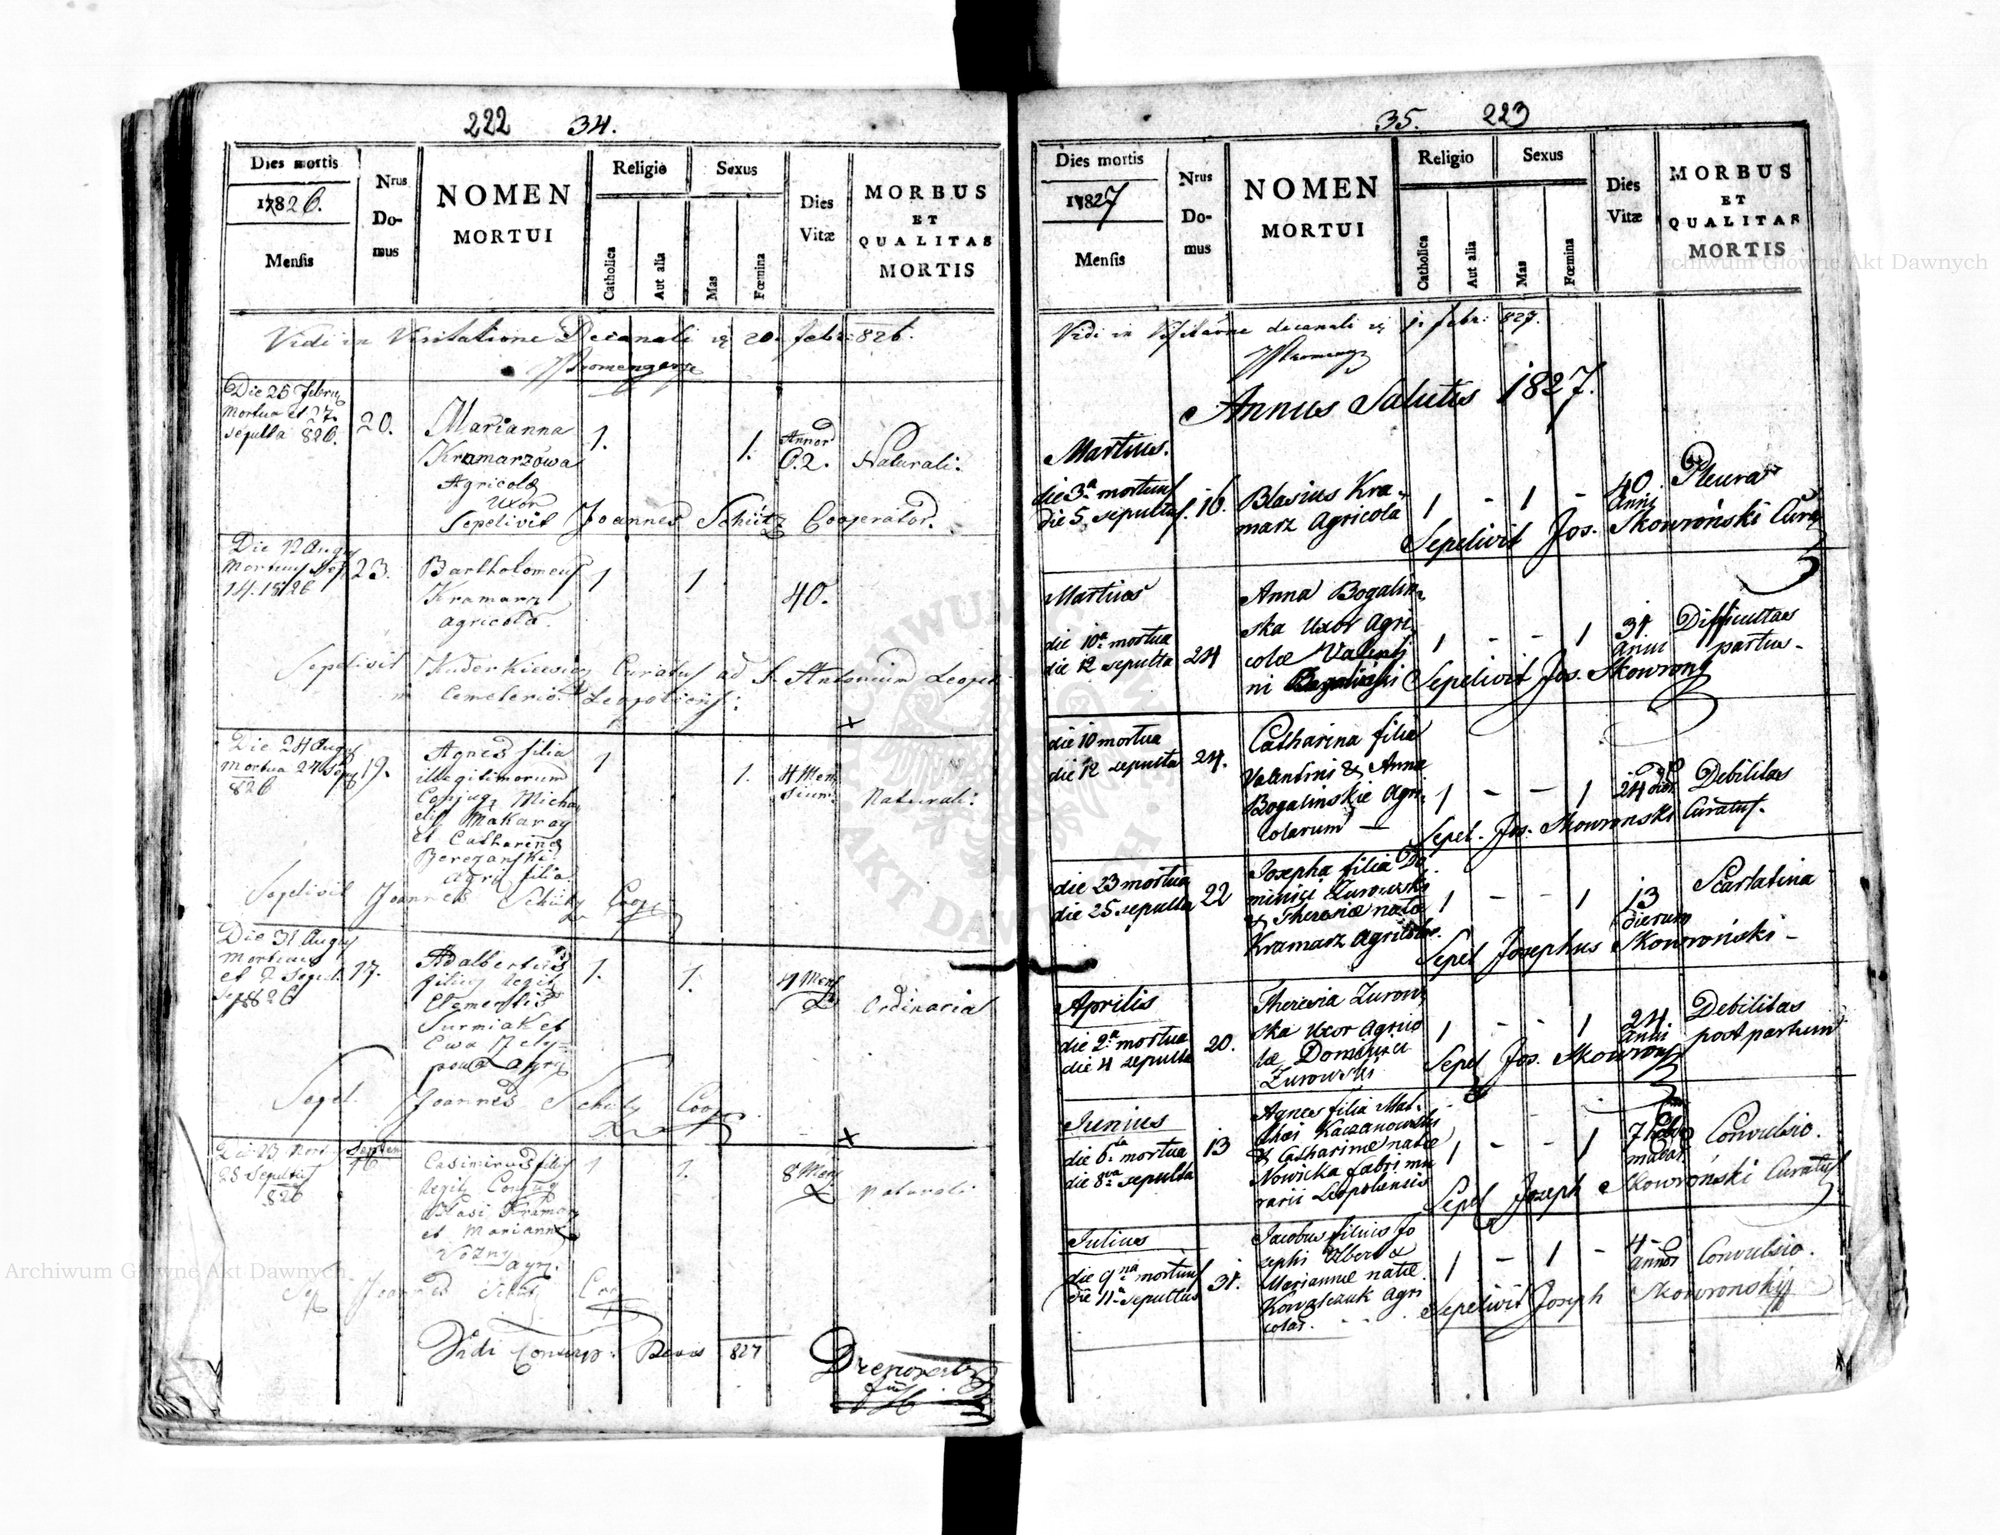 222 34.
Dies mortis
1826.
Mensis
Nrus
Do-
mus
NOMEN
MORTUI
Religio
Catholica
Aut alia
Sexus
Mas
Fœmina
Dies
Vitæ
MORBUS
ET
QUALITAS
MORTIS
Vidi in Visitatione Decanali 20 febr: 826.
Die 26 febru
mortua et 27.
sepulta 826.
20.
Marianna
Kramarzowa
Agricolæ
Uxor
1.
1.
Annor
62.
Naturali.
Sepelivit Joannes Schütz Cooperator.
Die 12 Aug
Mortuus
14. 1826
23.
Bartholomeus
Kramarz
agricola.
1
1
40.
Sepelivit Curatus ad S. Antonium Leopoli
in Cemeterio
Die 24 Aug
mortua 27 Sep
826
19.
Agnes filia
illegitimorum
Conjug. Micha
elis Makaray
et Catharina
Agri filia
1
1.
4 Men
sium.
Naturali:
Sepelivit Joannes Schütz Coop
Die 31 Aug
mortuus
et 2 Sepul.
Sep 826
17.
Adalbertus
filius Legit
Clementis
Surmiak et
Ewa
Agri
1.
1.
4 Men
Ordinaria
Sepel. Joannes Schütz Coop
Die 23 Mort
25 Sepultus
826
Septem
16.
Casimirus filius
Legit. Conjug
Blasi Kramar
et Marianna
Wozny
agri.
1
1.
8 Men
Naturali
Sep Joannes Schütz Coo
Vidi 827
35. 223
Dies mortis
1827
Mensis
Nrus
Do-
mus
NOMEN
MORTUI
Religio
Catholica
Aut alia
Sexus
Mas
Fœmina
Dies
Vitæ
MORBUS
ET
QUALITAS
MORTIS
Vidi in Visitatione decanali 1. febr: 827.
Annus Salutis 1827.
Martius.
die 3a mortuus
die 5 sepultus.
16.
Blasius Kra-
marz Agricola
1 - 1 -
40
anni
Pleura
Sepelivit Jos. Skowroński Curat
Martius
die 10a mortua
die 12 sepulta
24
Anna Bogalin-
ska Uxor Agri-
colæ Valenti
ni Bogaliński
1 - - 1
31
anni
Difficultas
partus-
Sepelivit Jos. Skowroń
die 10 mortua
die 12 sepulta
24.
Catharina filia
Valentini & Anna
Bogalinskie Agri-
colarum -
1 - - 1
24
Debilitas
Sepel. Jos. Skowronski Curatus.
die 23 mortua
die 25 sepulta
22
Josepha filia Do
minici Zurowski
& Theresiæ natæ
Kramarz Agricolar.
1 - - 1
13
dierum
Scarlatina
Sepel Josephus Skowroński-
Aprilis
die 2a mortua
die 4 sepulta
20.
Theresia Zurow
ska Uxor Agrico
læ Dominici
Zurowski
1 - - 1
24
anni
Debilitas
post partum
Sepel Jos. Skowroń
Junius
die 6ta mortua
die 8va sepulta
13
Agnes filia Mat-
thæi Kaczanowski
& Catharinæ natæ
Nowicka fabri mu
rarii Leopoliensis
1 - - 1
7 hebdo
madar.
Convulsio.
Sepel Joseph Skowroński Curatus
Julius
die 9na mortuus
die 11 sepultus
31.
Jacobus filius Jo
sephi Olber &
Mariannæ natæ
Kowalczuk Agri
colar.
1 - 1 -
4
annor
Convulsio.
Sepelivit Joseph Skowronski
Archiwum Główne Akt Dawnych
Archiwum Główne Akt Dawnych
ARCHIWUM GŁÓWNE AKT DAWNYCH